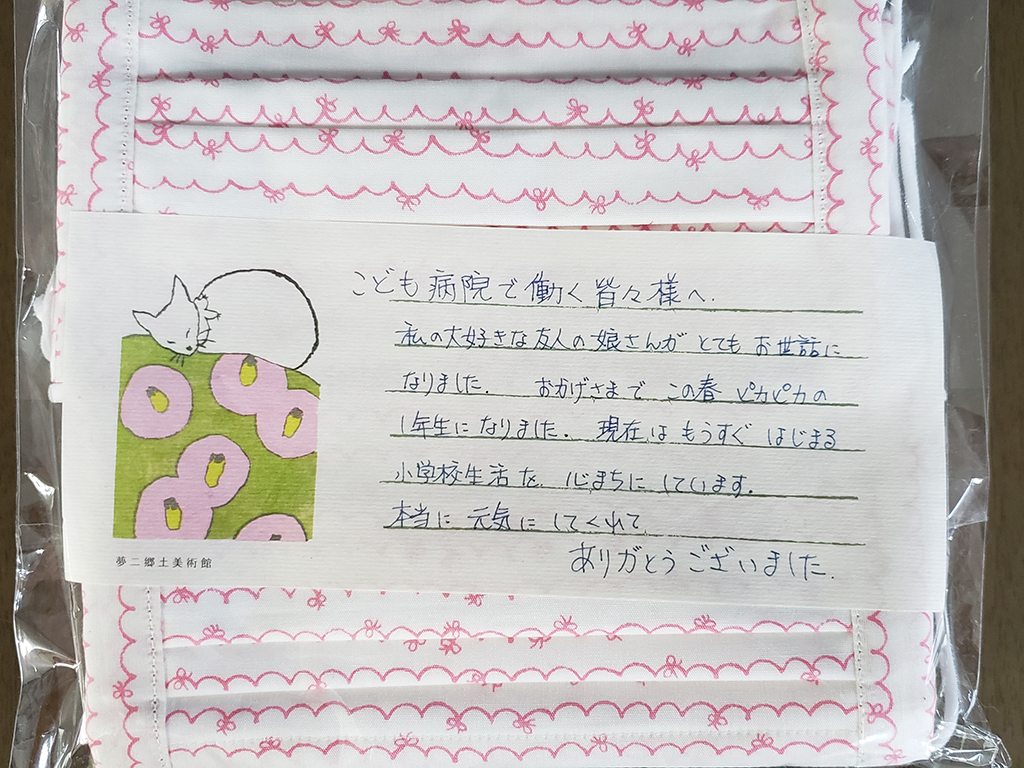 こども病院で働く皆々様へ.
私の大好きな友人の娘さんが とても お世話に
なりました. おかげさまで この春 ピカピカの
1年生に なりました. 現在は もうすぐ はじまる
小学校生活を. 心まちに しています.
本当に 元気に してくれて.
ありがとうございました.
夢二郷土美術館